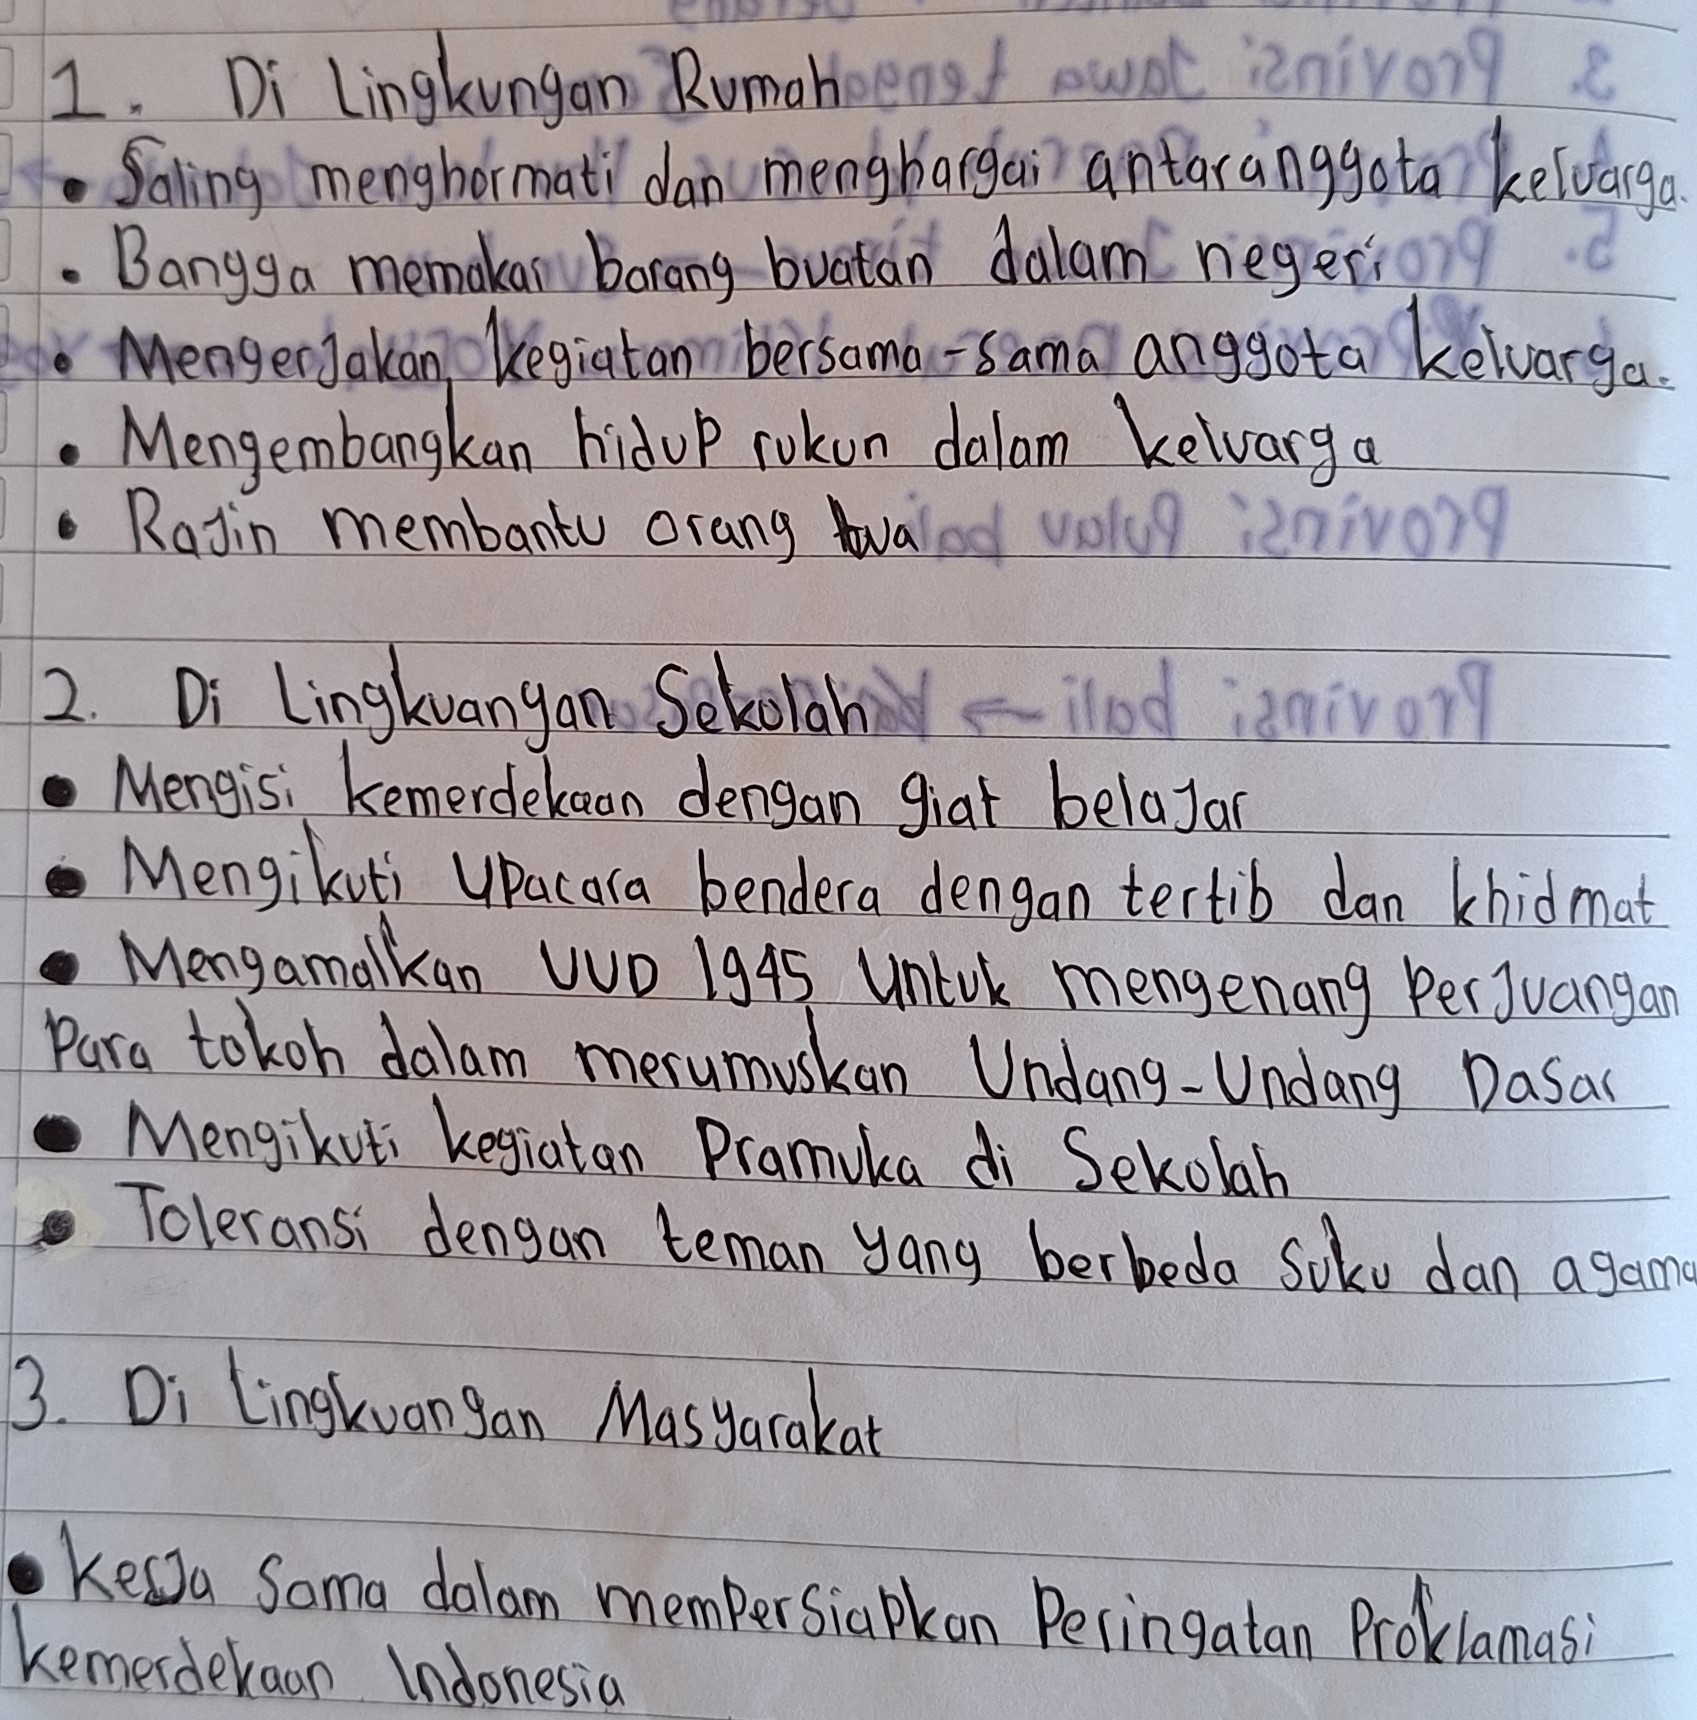 1. Di Lingkungan Rumah
• Saling menghormati dan menghargai antaranggota keluarga.
• Bangga memakai barang buatan dalam negeri
• Mengerjakan kegiatan bersama-sama anggota keluarga.
• Mengembangkan hidup rukun dalam keluarga
• Rajin membantu orang tua
2. Di Lingkuangan Sekolah
• Mengisi kemerdekaan dengan giat belajar
• Mengikuti upacara bendera dengan tertib dan khidmat
• Mengamalkan UUD 1945 Untuk mengenang Perjuangan
Para tokoh dalam merumuskan Undang-Undang Dasar
• Mengikuti kegiatan Pramuka di Sekolah
• Toleransi dengan teman yang berbeda Suku dan agama
3. Di Lingkuangan Masyarakat
• Kerja Sama dalam memPersiapkan Peringatan Proklamasi
kemerdekaan Indonesia